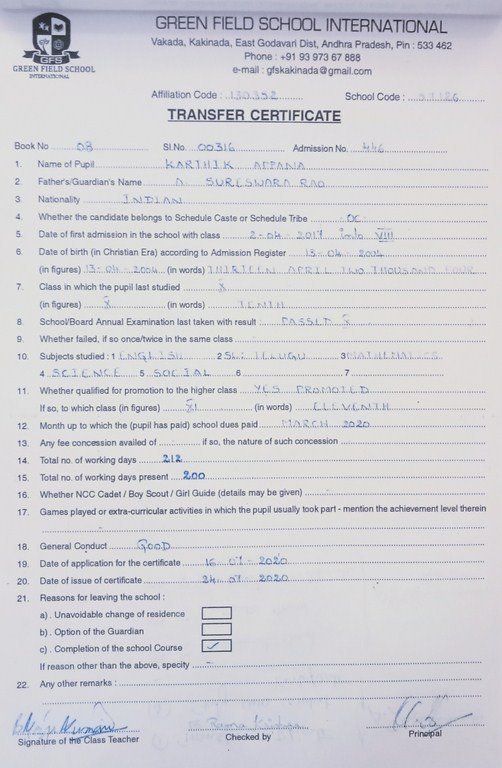 GREEN FIELD SCHOOL INTERNATIONAL
GFS
GREEN FIELD SCHOOL
INTERNATIONAL
Vakada, Kakinada, East Godavari Dist, Andhra Pradesh, Pin : 533 462
Phone : +91 93 973 67 888
e-mail : gfskakinada@gmail.com
Affiliation Code : 130352 School Code :
TRANSFER CERTIFICATE
Book No 08 Sl.No. 00316 Admission No. 446
1. Name of Pupil KARTHIK APPANA
2. Father's/Guardian's Name A. SURESWARA RAO
3. Nationality INDIAN
4. Whether the candidate belongs to Schedule Caste or Schedule Tribe OC
5. Date of first admission in the school with class 2-04-2017 into VIII
6. Date of birth (in Christian Era) according to Admission Register 13-04-2004
(in figures) 13-04-2004 (in words) THIRTEEN APRIL TWO THOUSAND FOUR
7. Class in which the pupil last studied X
(in figures) X (in words) TENTH
8. School/Board Annual Examination last taken with result : PASSED X
9. Whether failed, if so once/twice in the same class
10. Subjects studied : 1 ENGLISH 2 SL: TELUGU 3 MATHEMATICS
4 SCIENCE 5 SOCIAL 6 7
11. Whether qualified for promotion to the higher class YES PROMOTED
If so, to which class (in figures) XI (in words) ELEVENTH
12. Month up to which the (pupil has paid) school dues paid MARCH 2020
13. Any fee concession availed of if so, the nature of such concession
14. Total no. of working days 212
15. Total no. of working days present 200
16. Whether NCC Cadet / Boy Scout / Girl Guide (details may be given)
17. Games played or extra-curricular activities in which the pupil usually took part - mention the achievement level therein
18. General Conduct GOOD
19. Date of application for the certificate 16-07-2020
20. Date of issue of certificate 24-07-2020
21. Reasons for leaving the school :
a) . Unavoidable change of residence
b) . Option of the Guardian
c) . Completion of the school Course ✓
If reason other than the above, specify –
22. Any other remarks :
S. Rama Krishna
Signature of the Class Teacher Checked by Principal